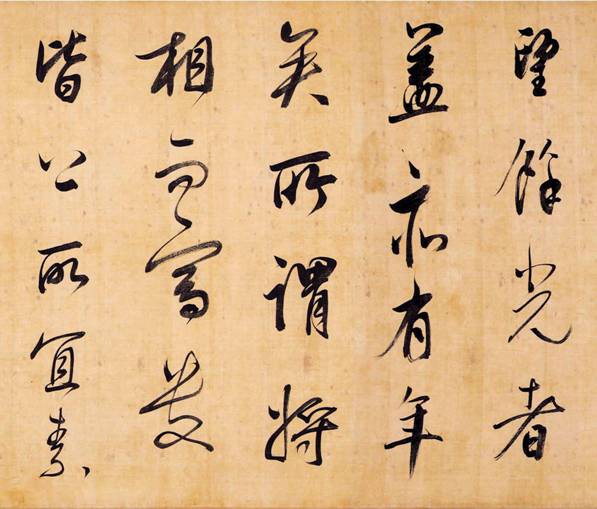 望餘光者
蓋亦有年
矣所謂將
相而富貴
皆公所宜素